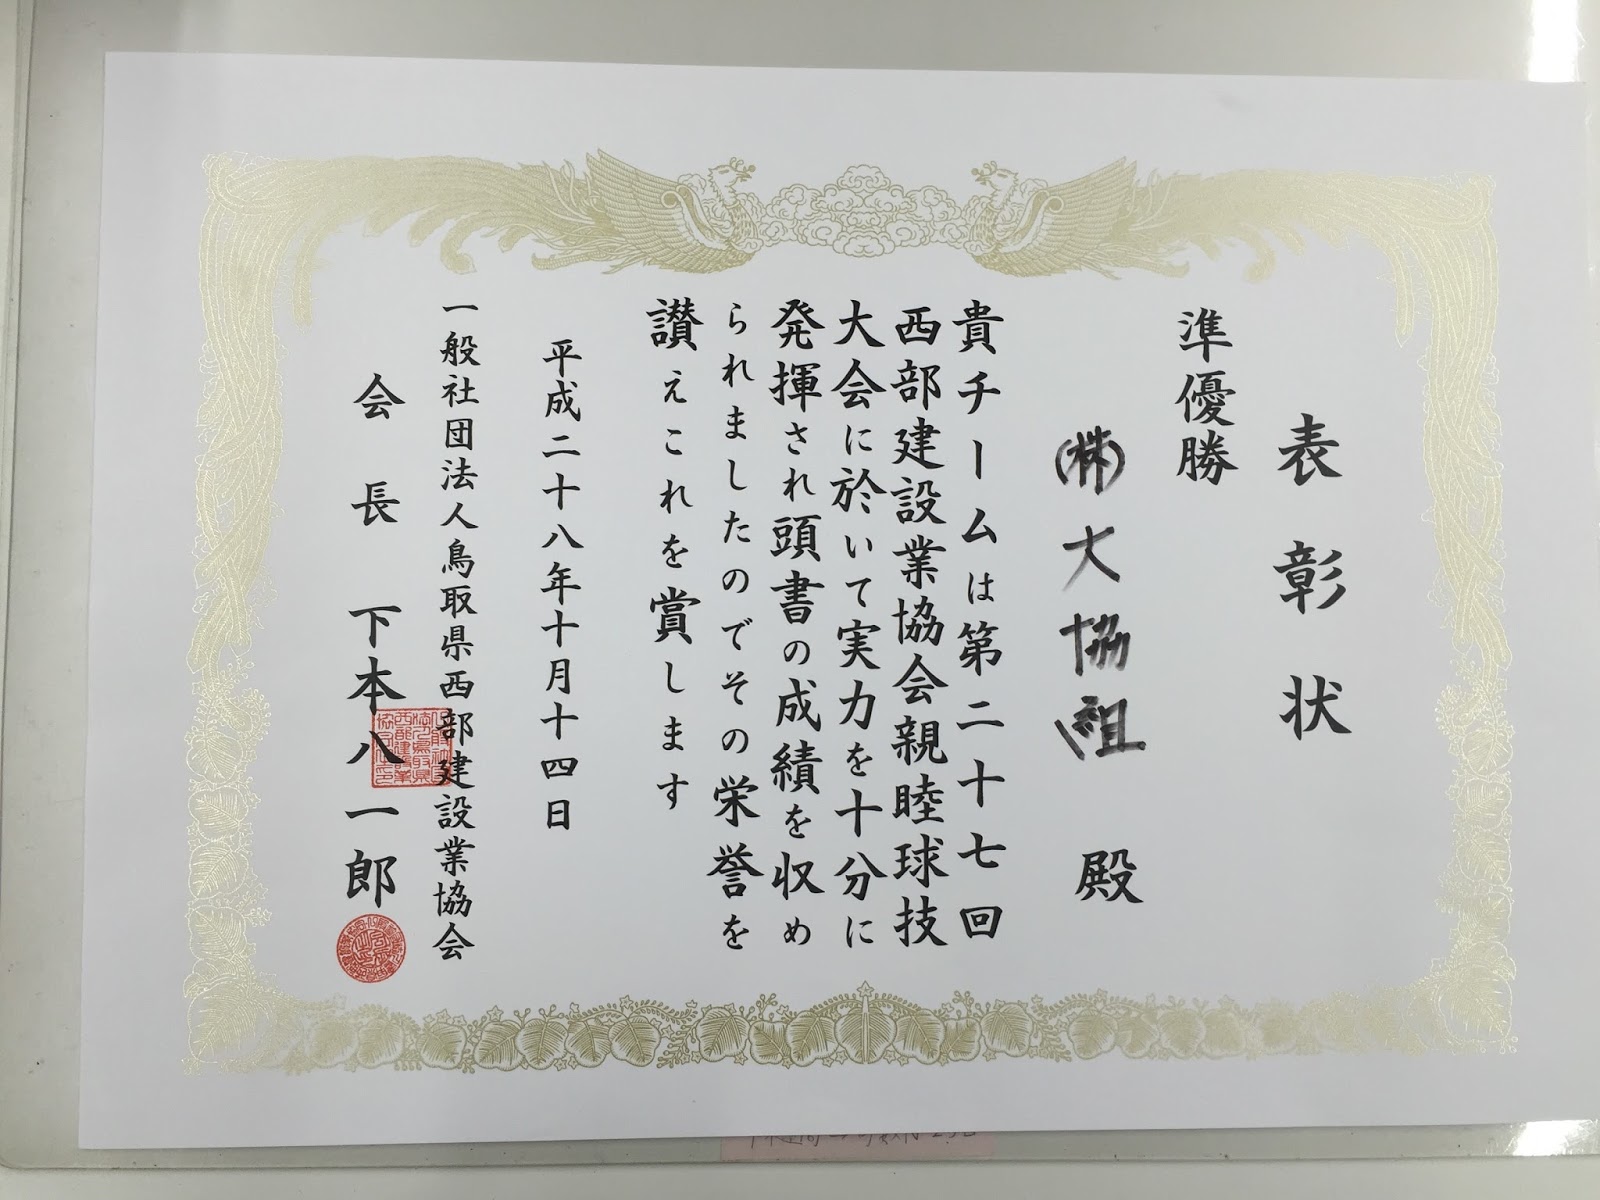 表彰状
準優勝
㈱大協組 殿
貴チームは第二十七回
西部建設業協会親睦球技
大会に於いて実力を十分に
発揮され頭書の成績を収め
られましたのでその栄誉を
讃えこれを賞します
平成二十八年十月十四日
一般社団法人鳥取県西部建設業協会
会長 下本八一郎